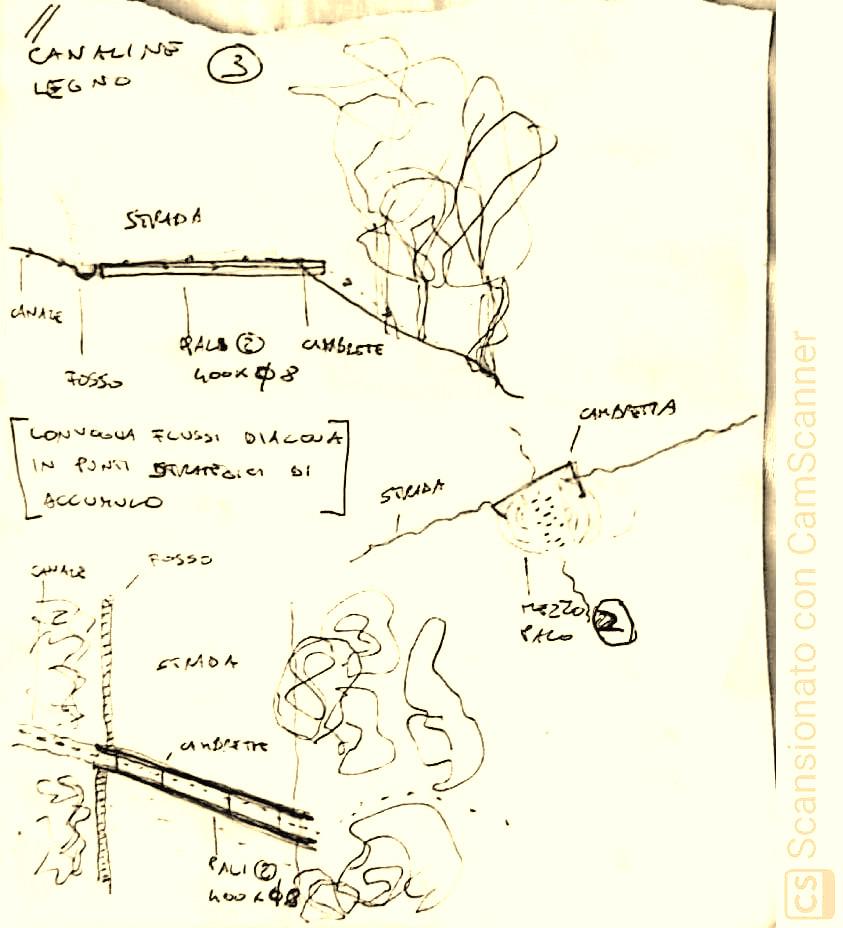 CANALINE
LEGNO
3
STRADA
CANALE
FOSSO
PALI 2
400 x Ø 8
CAMBRETE
CONVOGLIA FLUSSI D'ACQUA
IN PUNTI STRATEGICI DI
ACCUMULO
CAMBRETTA
STRADA
MEZZO
PALO
2
CANALE
FOSSO
STRADA
CAMBRETTE
PALI 2
400 x Ø8
CS Scansionato con CamScanner